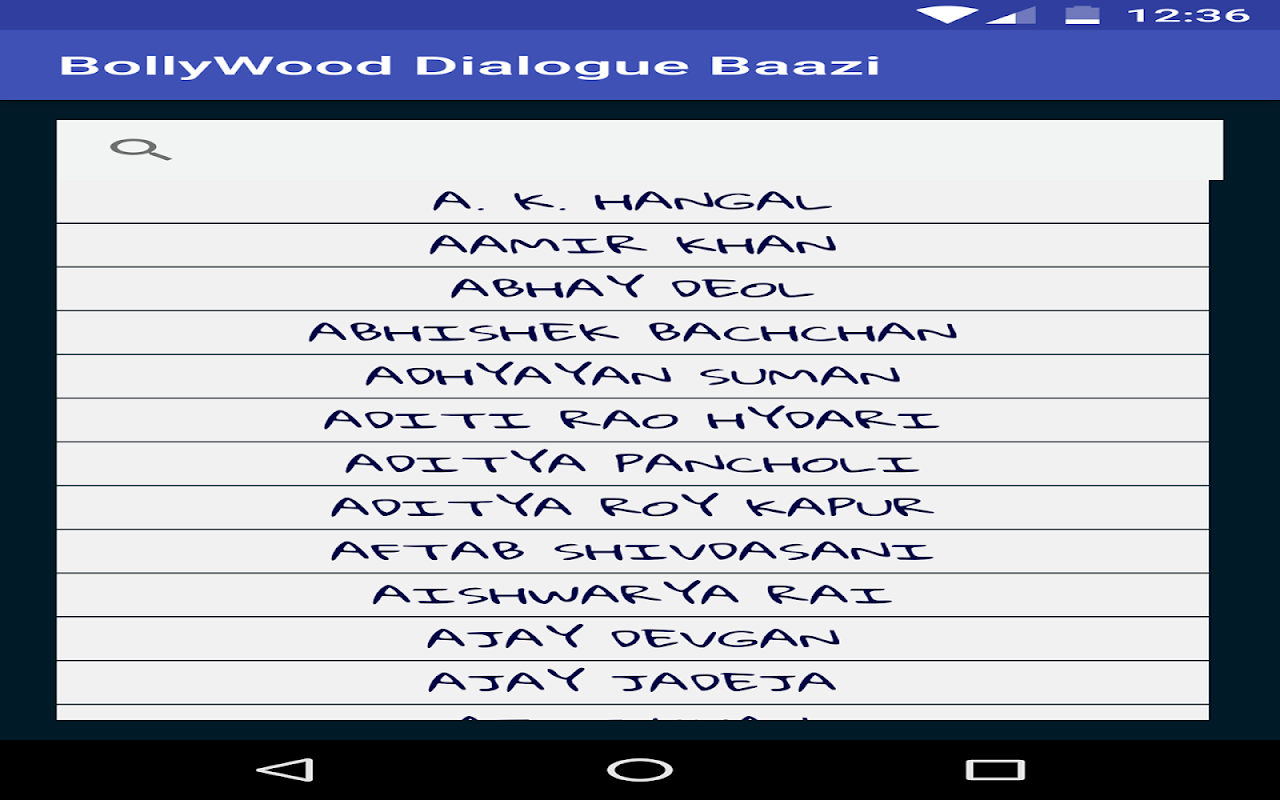 12:36
BollyWood Dialogue Baazi
A. K. HANGAL
AAMIR KHAN
ABHAY DEOL
ABHISHEK BACHCHAN
ADHYAYAN SUMAN
ADITI RAO HYDARI
ADITYA PANCHOLI
ADITYA ROY KAPUR
AFTAB SHIVDASANI
AISHWARYA RAI
AJAY DEVGAN
AJAY JADEJA